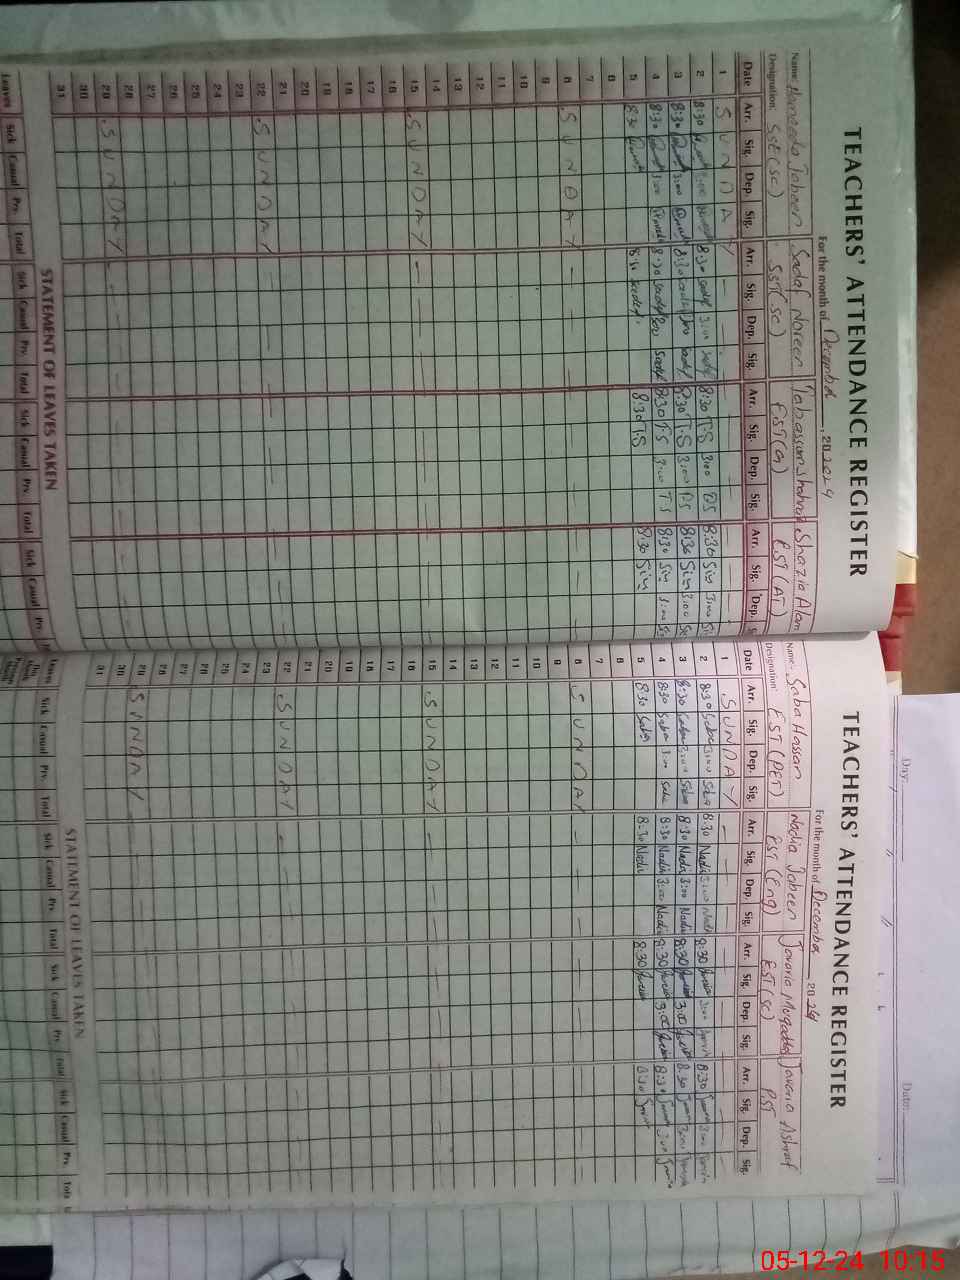 TEACHERS' ATTENDANCE REGISTER
For the month of December, 202024
Name: Hameeda Jabeen Sadaf Noreen Tabassum Shaheen Shazia Alam
Designation: SST(SC) SST(SC) EST(G) EST(AT)
Date Arr. Sig. Dep. Sig. Arr. Sig. Dep. Sig. Arr. Sig. Dep. Sig. Arr. Sig. Dep. S
1 SUNDAY
2 8:30 3:00 8:30 Sadaf 3:00 Sadaf 8:30 T.S 3:00 8:30 Sin 3:00
3 8:30 3:00 8:30 Sadaf 3:00 Sadaf 8:30 T.S 3:00 8:30 Sin 3:00
4 8:30 3:00 8:30 Sadaf Sadaf 8:30 T.S 3:00 TS 8:30 Sin 3:00
5 8:30 8:30 Sadaf 8:30 T.S 8:30 Sin
6
7
8 SUNDAY
9
10
11
12
13
14
15 SUNDAY
16
17
18
19
20
21
22 SUNDAY
23
24
25
26
27
28
29 SUNDAY
30
31
STATEMENT OF LEAVES TAKEN
Leaves Sick Casual Prv. Total Sick Casual Prv. Total Sick Casual Prv. Total Sick Casual Prv.
TEACHERS' ATTENDANCE REGISTER
For the month of December 2024
Name: Saba Hassan Nadia Jabeen Javaria Muqaddas Javaria Ashraf
Designation: EST(PET) EST(Eng) EST(SC) PST
Date Arr. Sig. Dep. Sig. Arr. Sig. Dep. Sig. Arr. Sig. Dep. Sig. Arr. Sig. Dep. Sig.
1 SUNDAY
2 8:30 Saba 3:00 Saba 8:30 Nadia 3:00 Nadia 8:30 3:00 8:30 3:00
3 8:30 Saba 3:00 Saba 8:30 Nadia 3:00 Nadia 8:30 3:00 8:30 3:00
4 8:30 Saba 3:00 Saba 8:30 Nadia 3:00 Nadia 8:30 3:00 8:30 3:00
5 8:30 Saba 8:30 Nadia 8:30 8:30
6
7
8 SUNDAY
9
10
11
12
13
14
15 SUNDAY
16
17
18
19
20
21
22 SUNDAY
23
24
25
26
27
28
29 SUNDAY
30
31
STATEMENT OF LEAVES TAKEN
Leaves Sick Casual Prv. Total Sick Casual Prv. Total Sick Casual Prv. Total Sick Casual Prv. Tota
Day: Date:
05-12-24 10:15